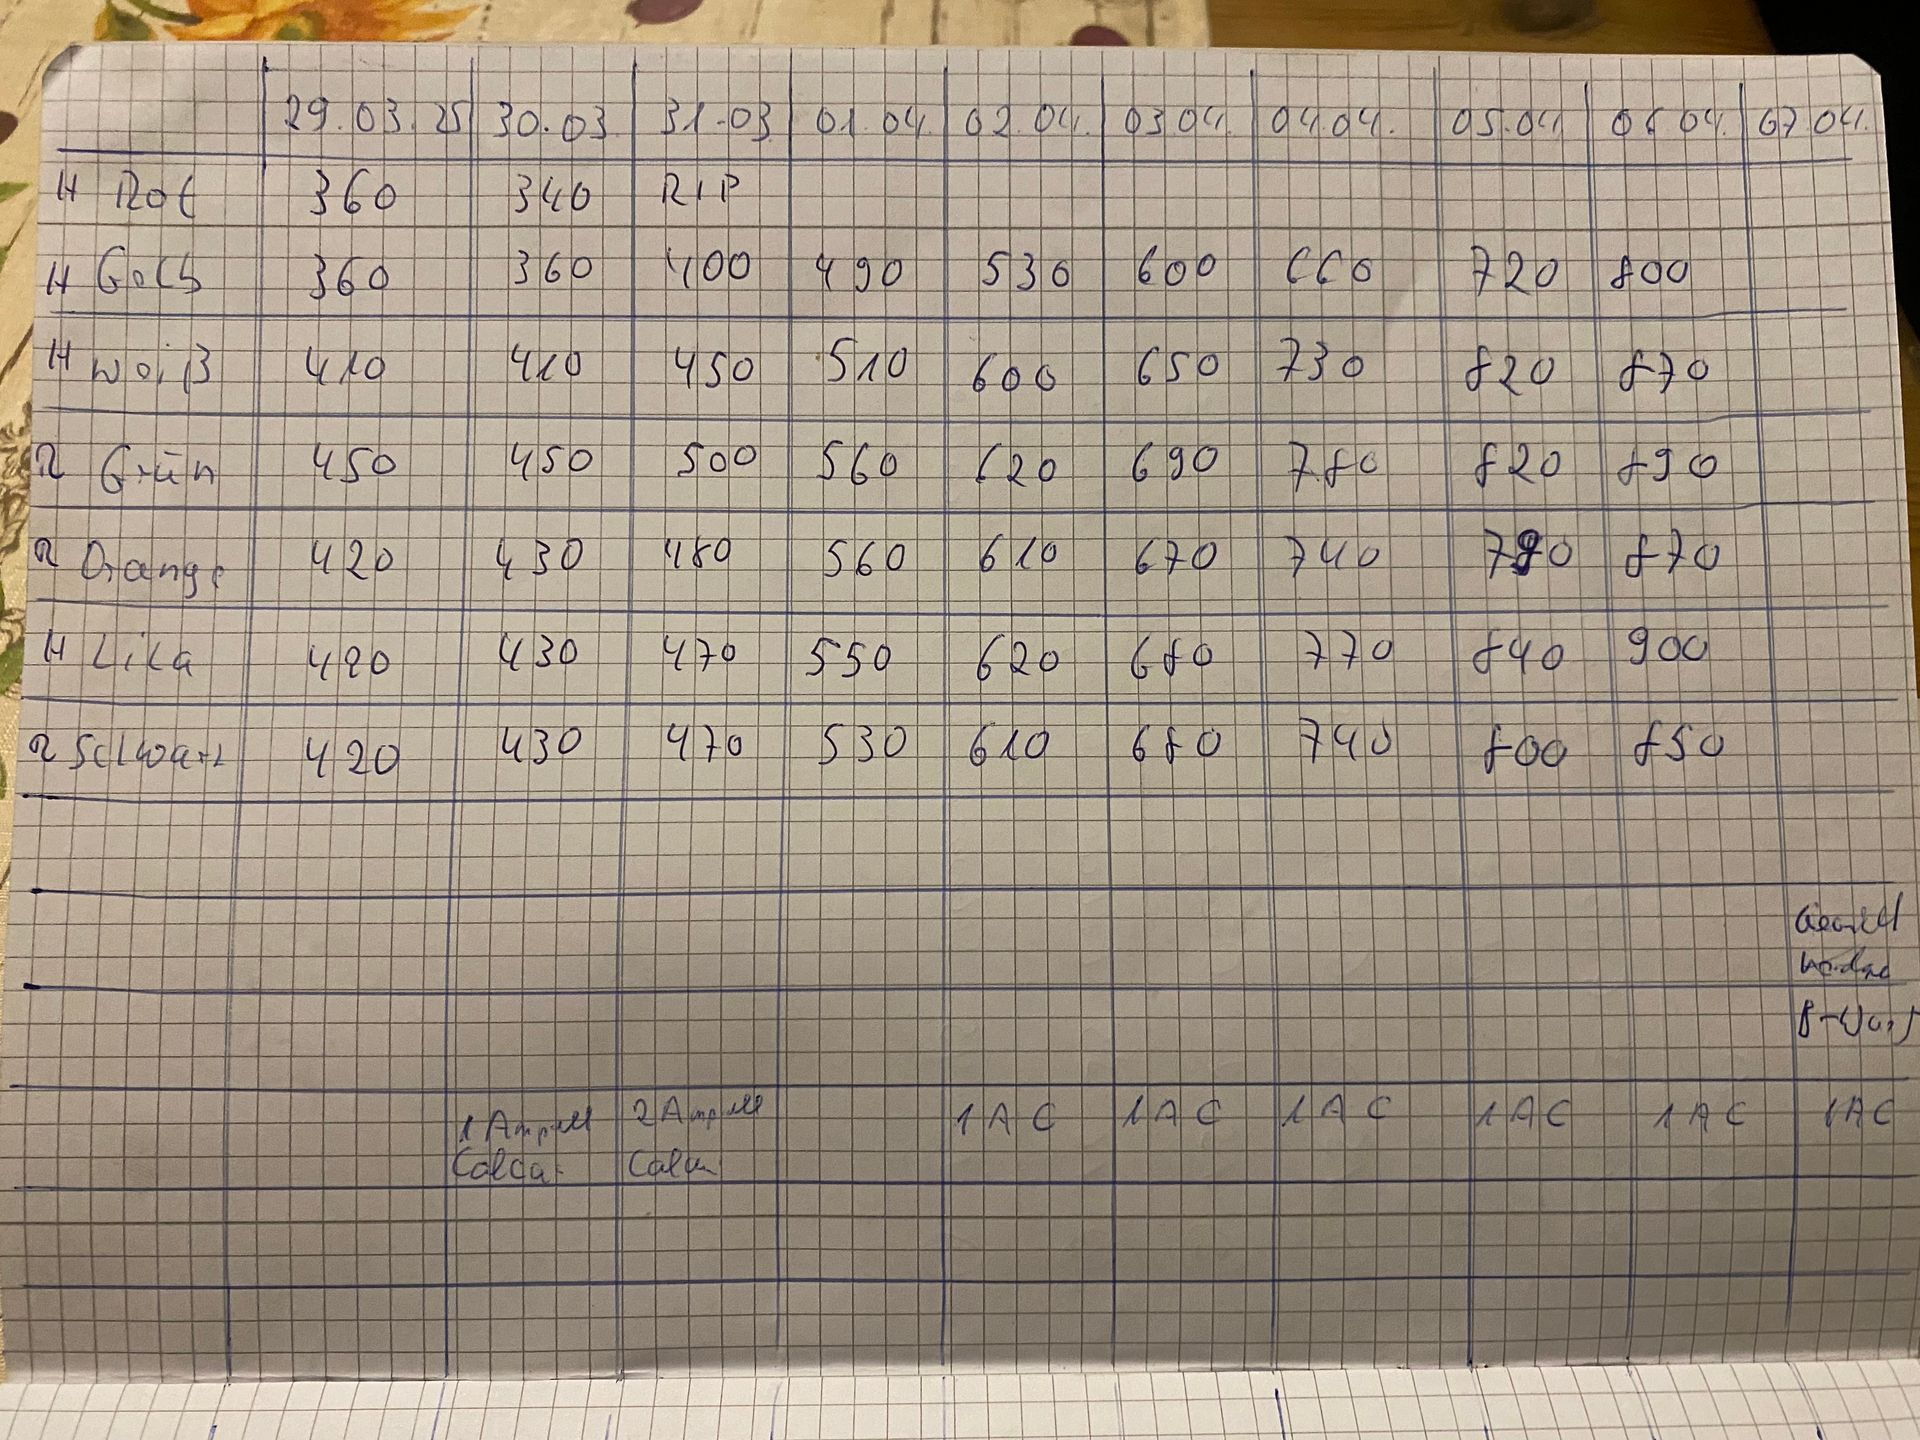 29.03.25 30.03. 31.03 01.04. 02.04. 03.04. 04.04. 05.04 06.04. 07.04.
H Rot 360 340 RIP
H Gelb 360 360 400 490 530 600 660 720 800
H weiß 410 410 450 510 600 650 730 820 870
R Grün 450 450 500 560 620 690 780 820 890
R Orange 420 430 480 560 610 670 740 790 870
H Lila 420 430 470 550 620 680 770 840 900
R Schwarz 420 430 470 530 610 680 740 800 850
1 Ampull 2 Ampull 1 A C 1 A C 1 A C 1 A C 1 A C 1 A C